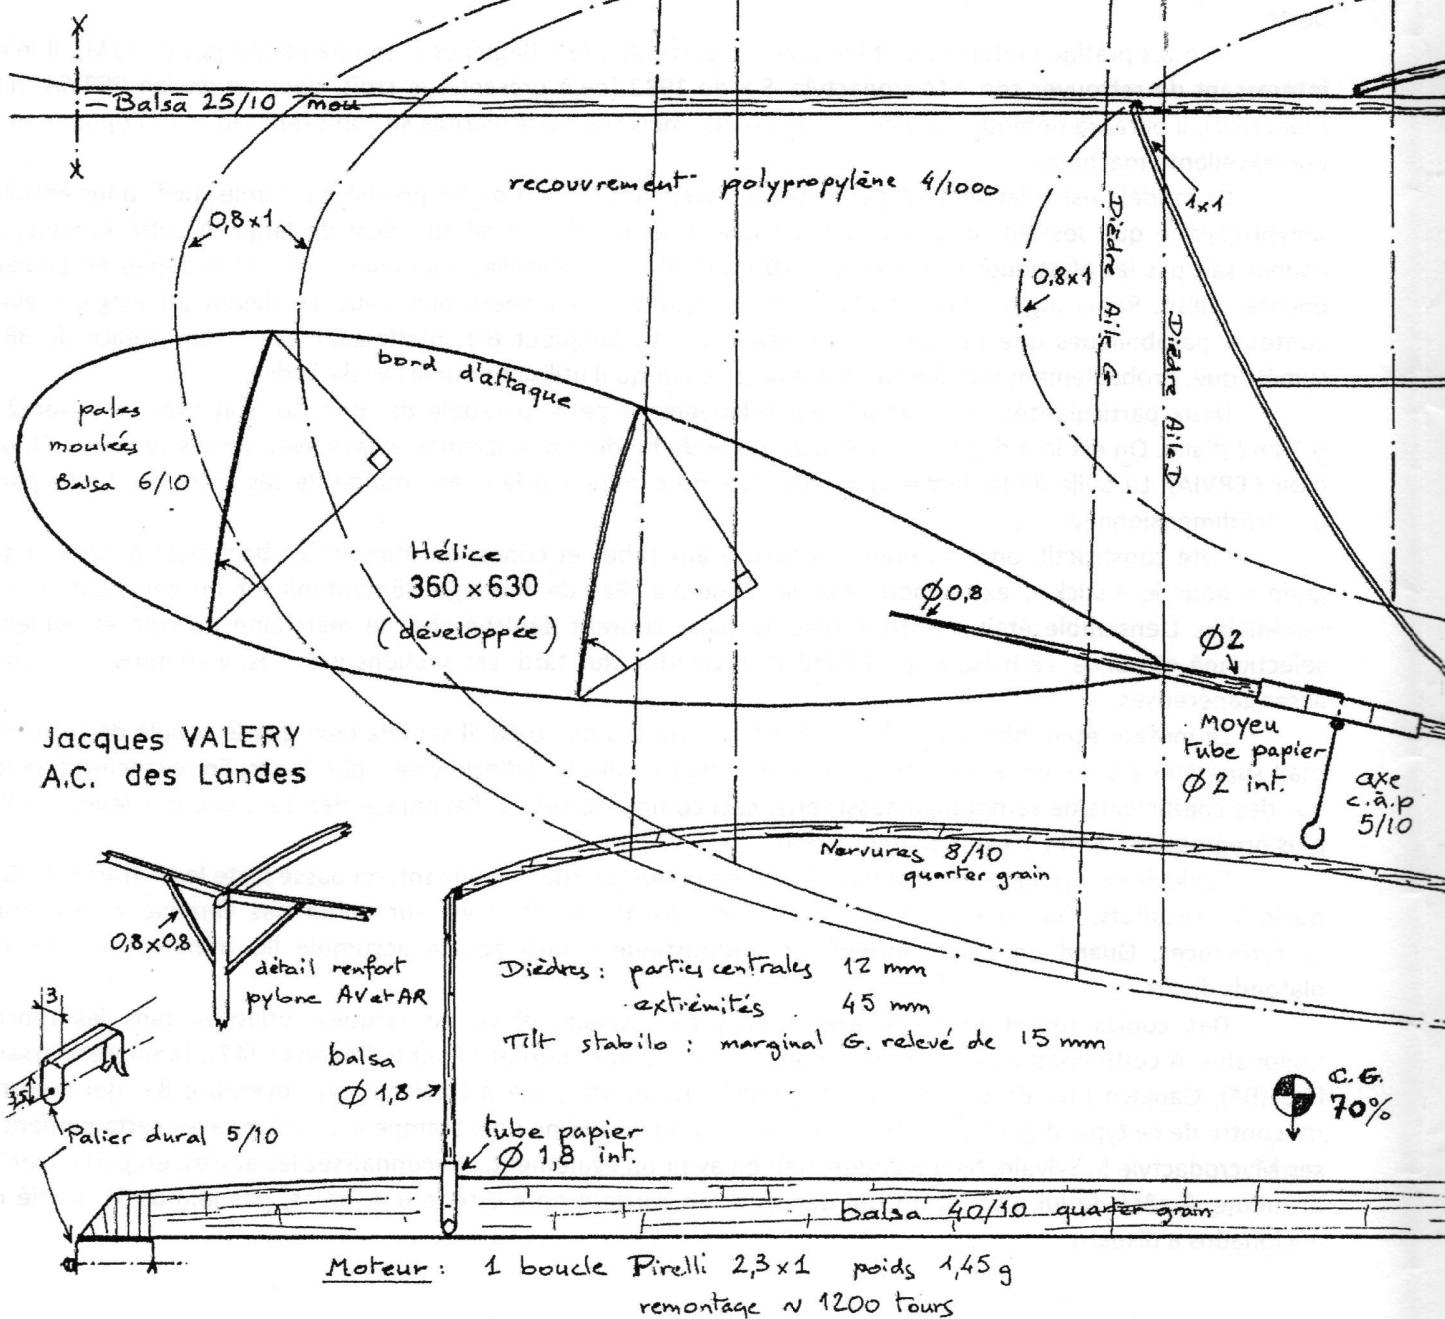 X
X
Balsa 25/10 mou
recouvrement polypropylène 4/1000
1x1
0,8x1
0,8x1
Dièdre Aile G
Dièdre Aile D
bord d'attaque
pales
moulées
Balsa 6/10
Hélice
360 x 630
(développée)
Ø 0,8
Ø 2
Moyeu
tube papier
Ø 2 int.
axe
c.à.p
5/10
Jacques VALERY
A.C. des Landes
Nervures 8/10
quarter grain
0,8x0,8
détail renfort
pylone AV et AR
Dièdres : parties centrales 12 mm
extrémités 45 mm
Tilt stabilo : marginal G. relevé de 15 mm
balsa
Ø 1,8
3
Palier dural 5/10
tube papier
Ø 1,8 int.
C.G.
70%
balsa 40/10 quarter grain
Moteur : 1 boucle Pirelli 2,3 x 1 poids 1,45 g
remontage ~ 1200 tours